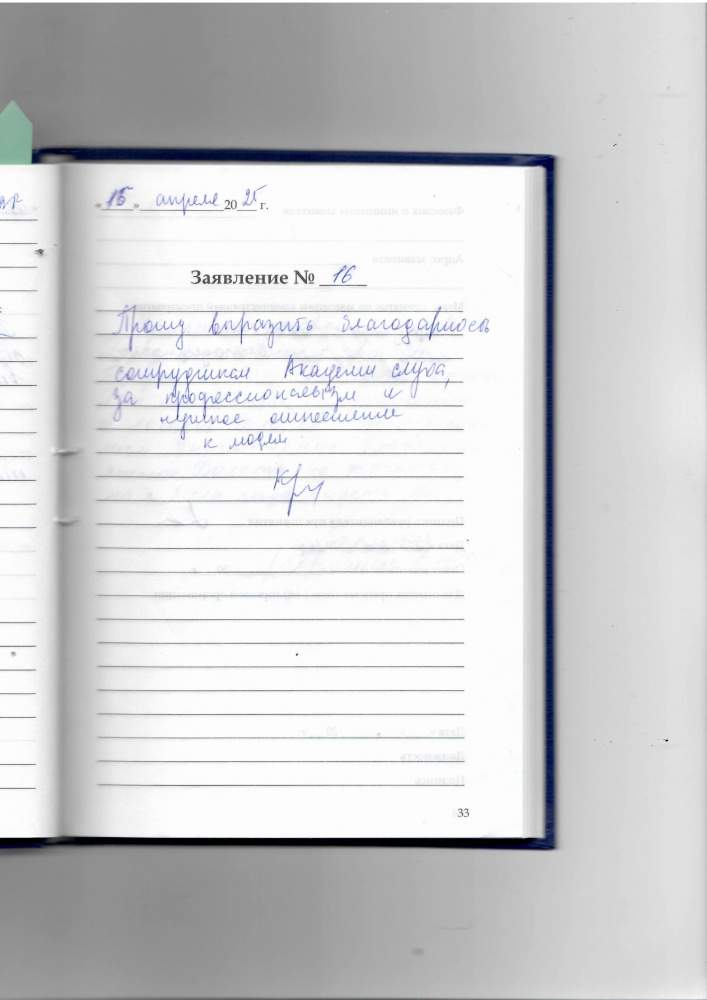 "15" апреля 2025 г.
Заявление № 16
Прошу выразить благодарность
сотрудникам Академии слуха,
за профессионализм и
чуткое отношение
к людям
33